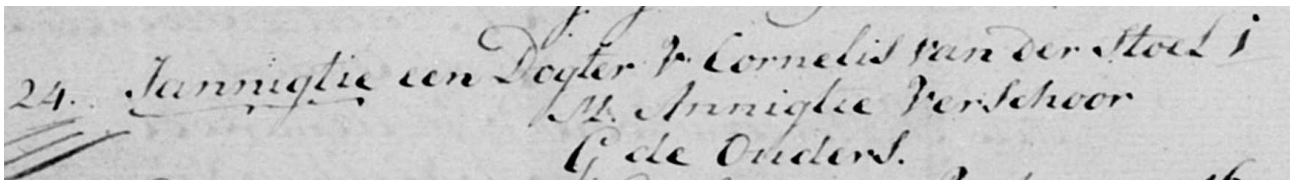 24. Jannigtie een Dogter V. Cornelis van der Stoel j
M. Annigtie Verschoor
G de Ouders.